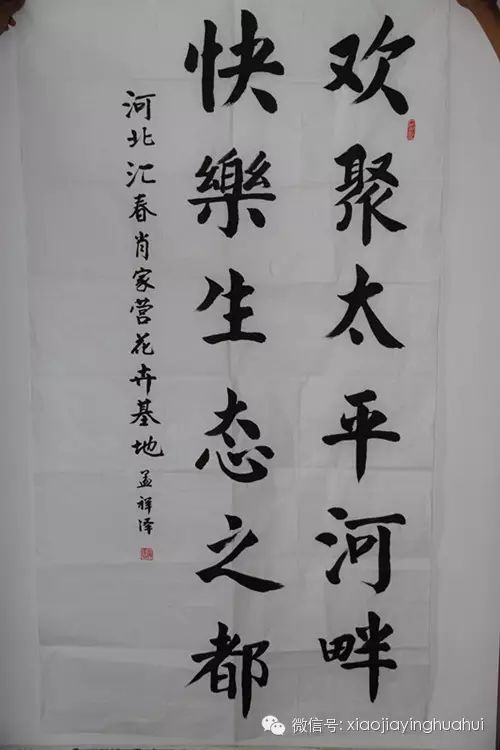 欢聚太平河畔
快樂生态之都
河北汇春肖家营花卉基地
孟祥泽
微信号: xiaojiayinghuahui